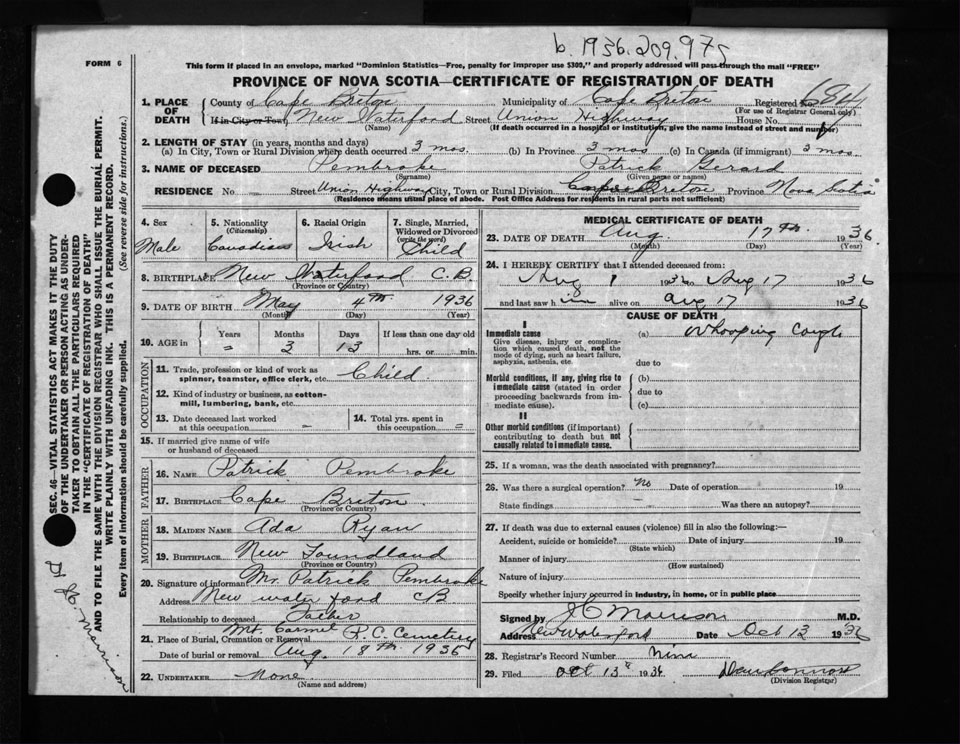 b. 1936.209.975
FORM 6
This form if placed in an envelope, marked "Dominion Statistics—Free, penalty for improper use $300," and properly addressed will pass through the mail "FREE"
PROVINCE OF NOVA SCOTIA—CERTIFICATE OF REGISTRATION OF DEATH
1. PLACE OF DEATH
County of Cape Breton Municipality of Cape Breton Registered No.
(For use of Registrar General only)
If in City or Town New Waterford Street Union Highway House No.
(Name) (If death occurred in a hospital or institution, give the name instead of street and number)
2. LENGTH OF STAY (in years, months and days)
(a) In City, Town or Rural Division where death occurred 3 mos. (b) In Province 3 mos (c) In Canada (if immigrant) 3 mos.
3. NAME OF DECEASED Pembroke Patrick Gerard
(Surname) (Given name or names)
RESIDENCE No — Street Union Highway City, Town or Rural Division Cape Breton Province Nova Scotia
(Residence means usual place of abode. Post Office Address for residents in rural parts not sufficient)
4. Sex
Male
5. Nationality
(Citizenship)
Canadian
6. Racial Origin
Irish
7. Single, Married, Widowed or Divorced
(write the word)
Child
8. BIRTHPLACE New Waterford C.B
(Province or Country)
9. DATE OF BIRTH May 4th 1936
(Month) (Day) (Year)
10. AGE in
Years Months Days If less than one day old
= 3 13 hrs. or min.
OCCUPATION
11. Trade, profession or kind of work as spinner, teamster, office clerk, etc. Child
12. Kind of industry or business, as cotton-mill, lumbering, bank, etc.
13. Date deceased last worked at this occupation —
14. Total yrs. spent in this occupation =
15. If married give name of wife or husband of deceased
FATHER
16. NAME Patrick Pembroke
17. BIRTHPLACE Cape Breton
(Province or Country)
MOTHER
18. MAIDEN NAME Ada Ryan
19. BIRTHPLACE New Foundland
(Province or Country)
20. Signature of informant Mr. Patrick Pembroke
Address New waterford CB
Relationship to deceased Father
21. Place of Burial, Cremation or Removal Mt. Carmel R.C. Cemetery
Date of burial or removal Aug. 18th 1936
22. UNDERTAKER None
(Name and address)
MEDICAL CERTIFICATE OF DEATH
23. DATE OF DEATH Aug. 17th 1936
(Month) (Day) (Year)
24. I HEREBY CERTIFY that I attended deceased from:
Aug 1 1936 to Aug 17 1936
and last saw him alive on aug 17 1936
CAUSE OF DEATH
I
Immediate cause
Give disease, injury or complication which caused death, not the mode of dying, such as heart failure, asphyxia, asthenia, etc.
(a) Whooping Cough
due to
Morbid conditions, if any, giving rise to immediate cause (stated in order proceeding backwards from immediate cause).
(b)
due to
(c)
II
Other morbid conditions (if important) contributing to death but not causally related to immediate cause.
25. If a woman, was the death associated with pregnancy?
26. Was there a surgical operation? No Date of operation 19
State findings Was there an autopsy?
27. If death was due to external causes (violence) fill in also the following:—
Accident, suicide or homicide? Date of injury 19
(State which)
Manner of injury
(How sustained)
Nature of injury
Specify whether injury occurred in industry, in home, or in public place
Signed by JC Morrison M.D.
Address New Waterford Date Oct 13 1936
28. Registrar's Record Number Nine
29. Filed Oct 13 1936
(Division Registrar)
SEC. 46—VITAL STATISTICS ACT MAKES IT THE DUTY
OF THE UNDERTAKER OR PERSON ACTING AS UNDER-
TAKER TO OBTAIN ALL THE PARTICULARS REQUIRED
IN THE "CERTIFICATE OF REGISTRATION OF DEATH"
AND TO FILE THE SAME WITH THE DIVISION REGISTRAR WHO SHALL ISSUE THE BURIAL PERMIT.
WRITE PLAINLY WITH UNFADING INK. THIS IS A PERMANENT RECORD.
Every item of information should be carefully supplied. (See reverse side for instructions.)